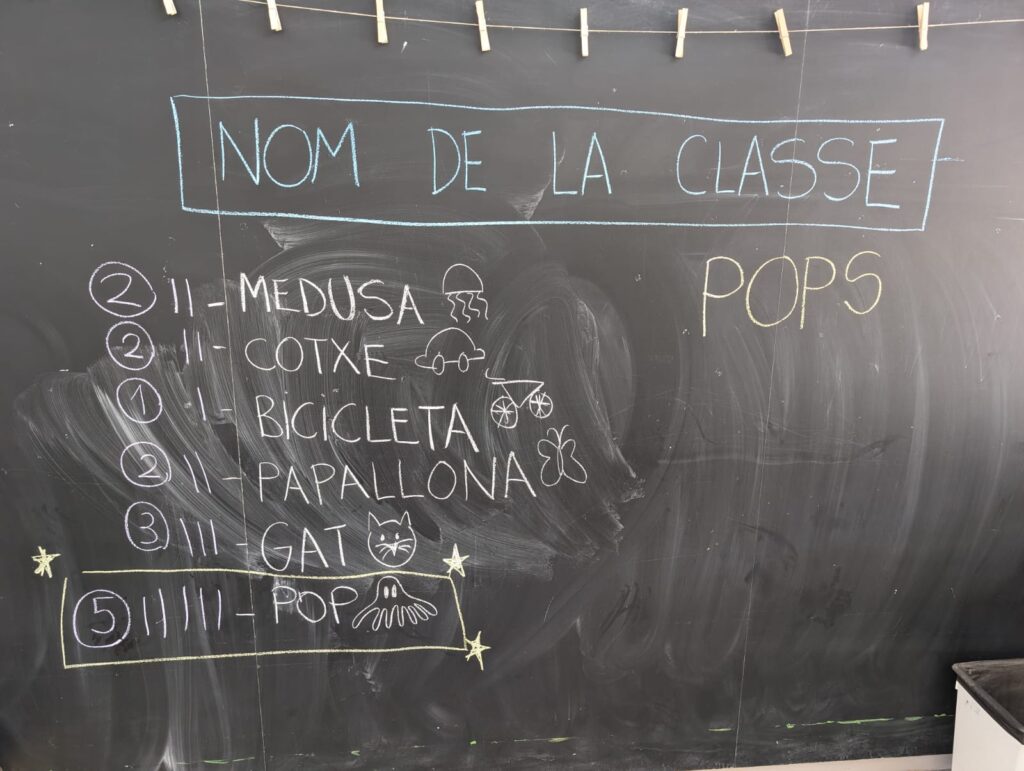 NOM DE LA CLASSE
POPS
2 II - MEDUSA
2 II - COTXE
1 I - BICICLETA
2 II - PAPALLONA
3 III - GAT
5 IIIII - POP